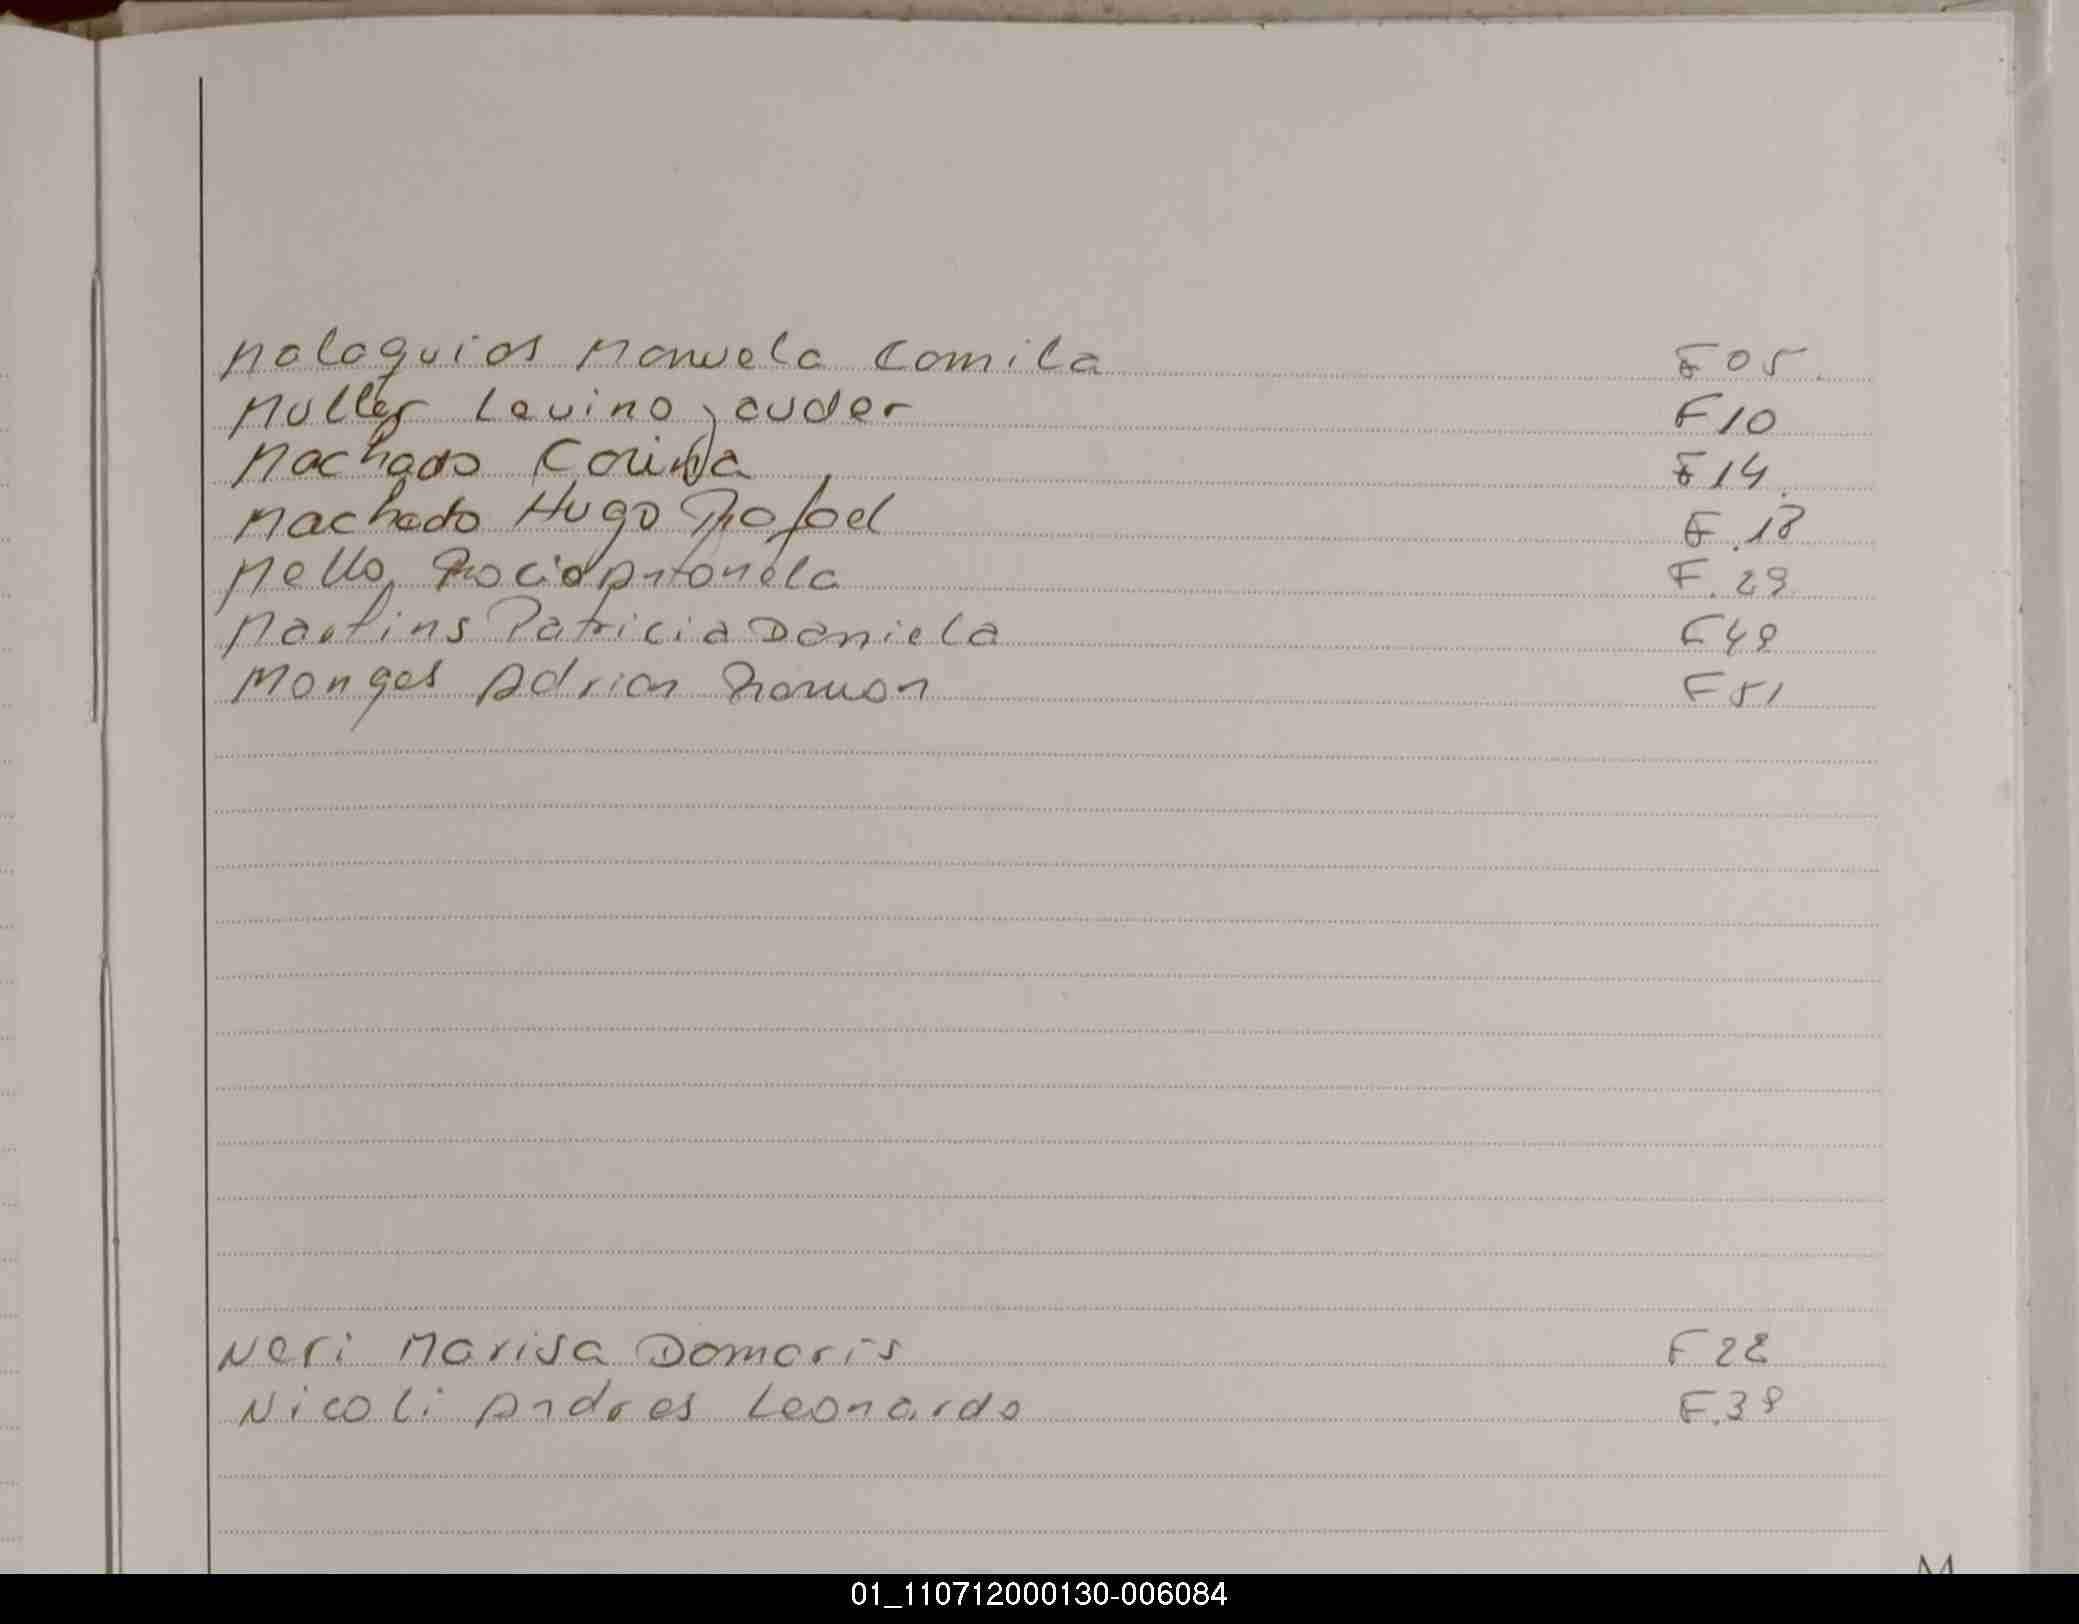 Malaquias Manuela Camila F 05.
Muller Lauino, auder F 10
Machado Corina F 14.
Machado Hugo Rafael F. 18
Mello, Rocio Antonela F. 29
Martins Patricia Daniela F 49
Monges Adrian Ramon F 51
Neri Marisa Damaris F 22
Nicoli Andres Leonardo F. 39
M
01_110712000130-006084